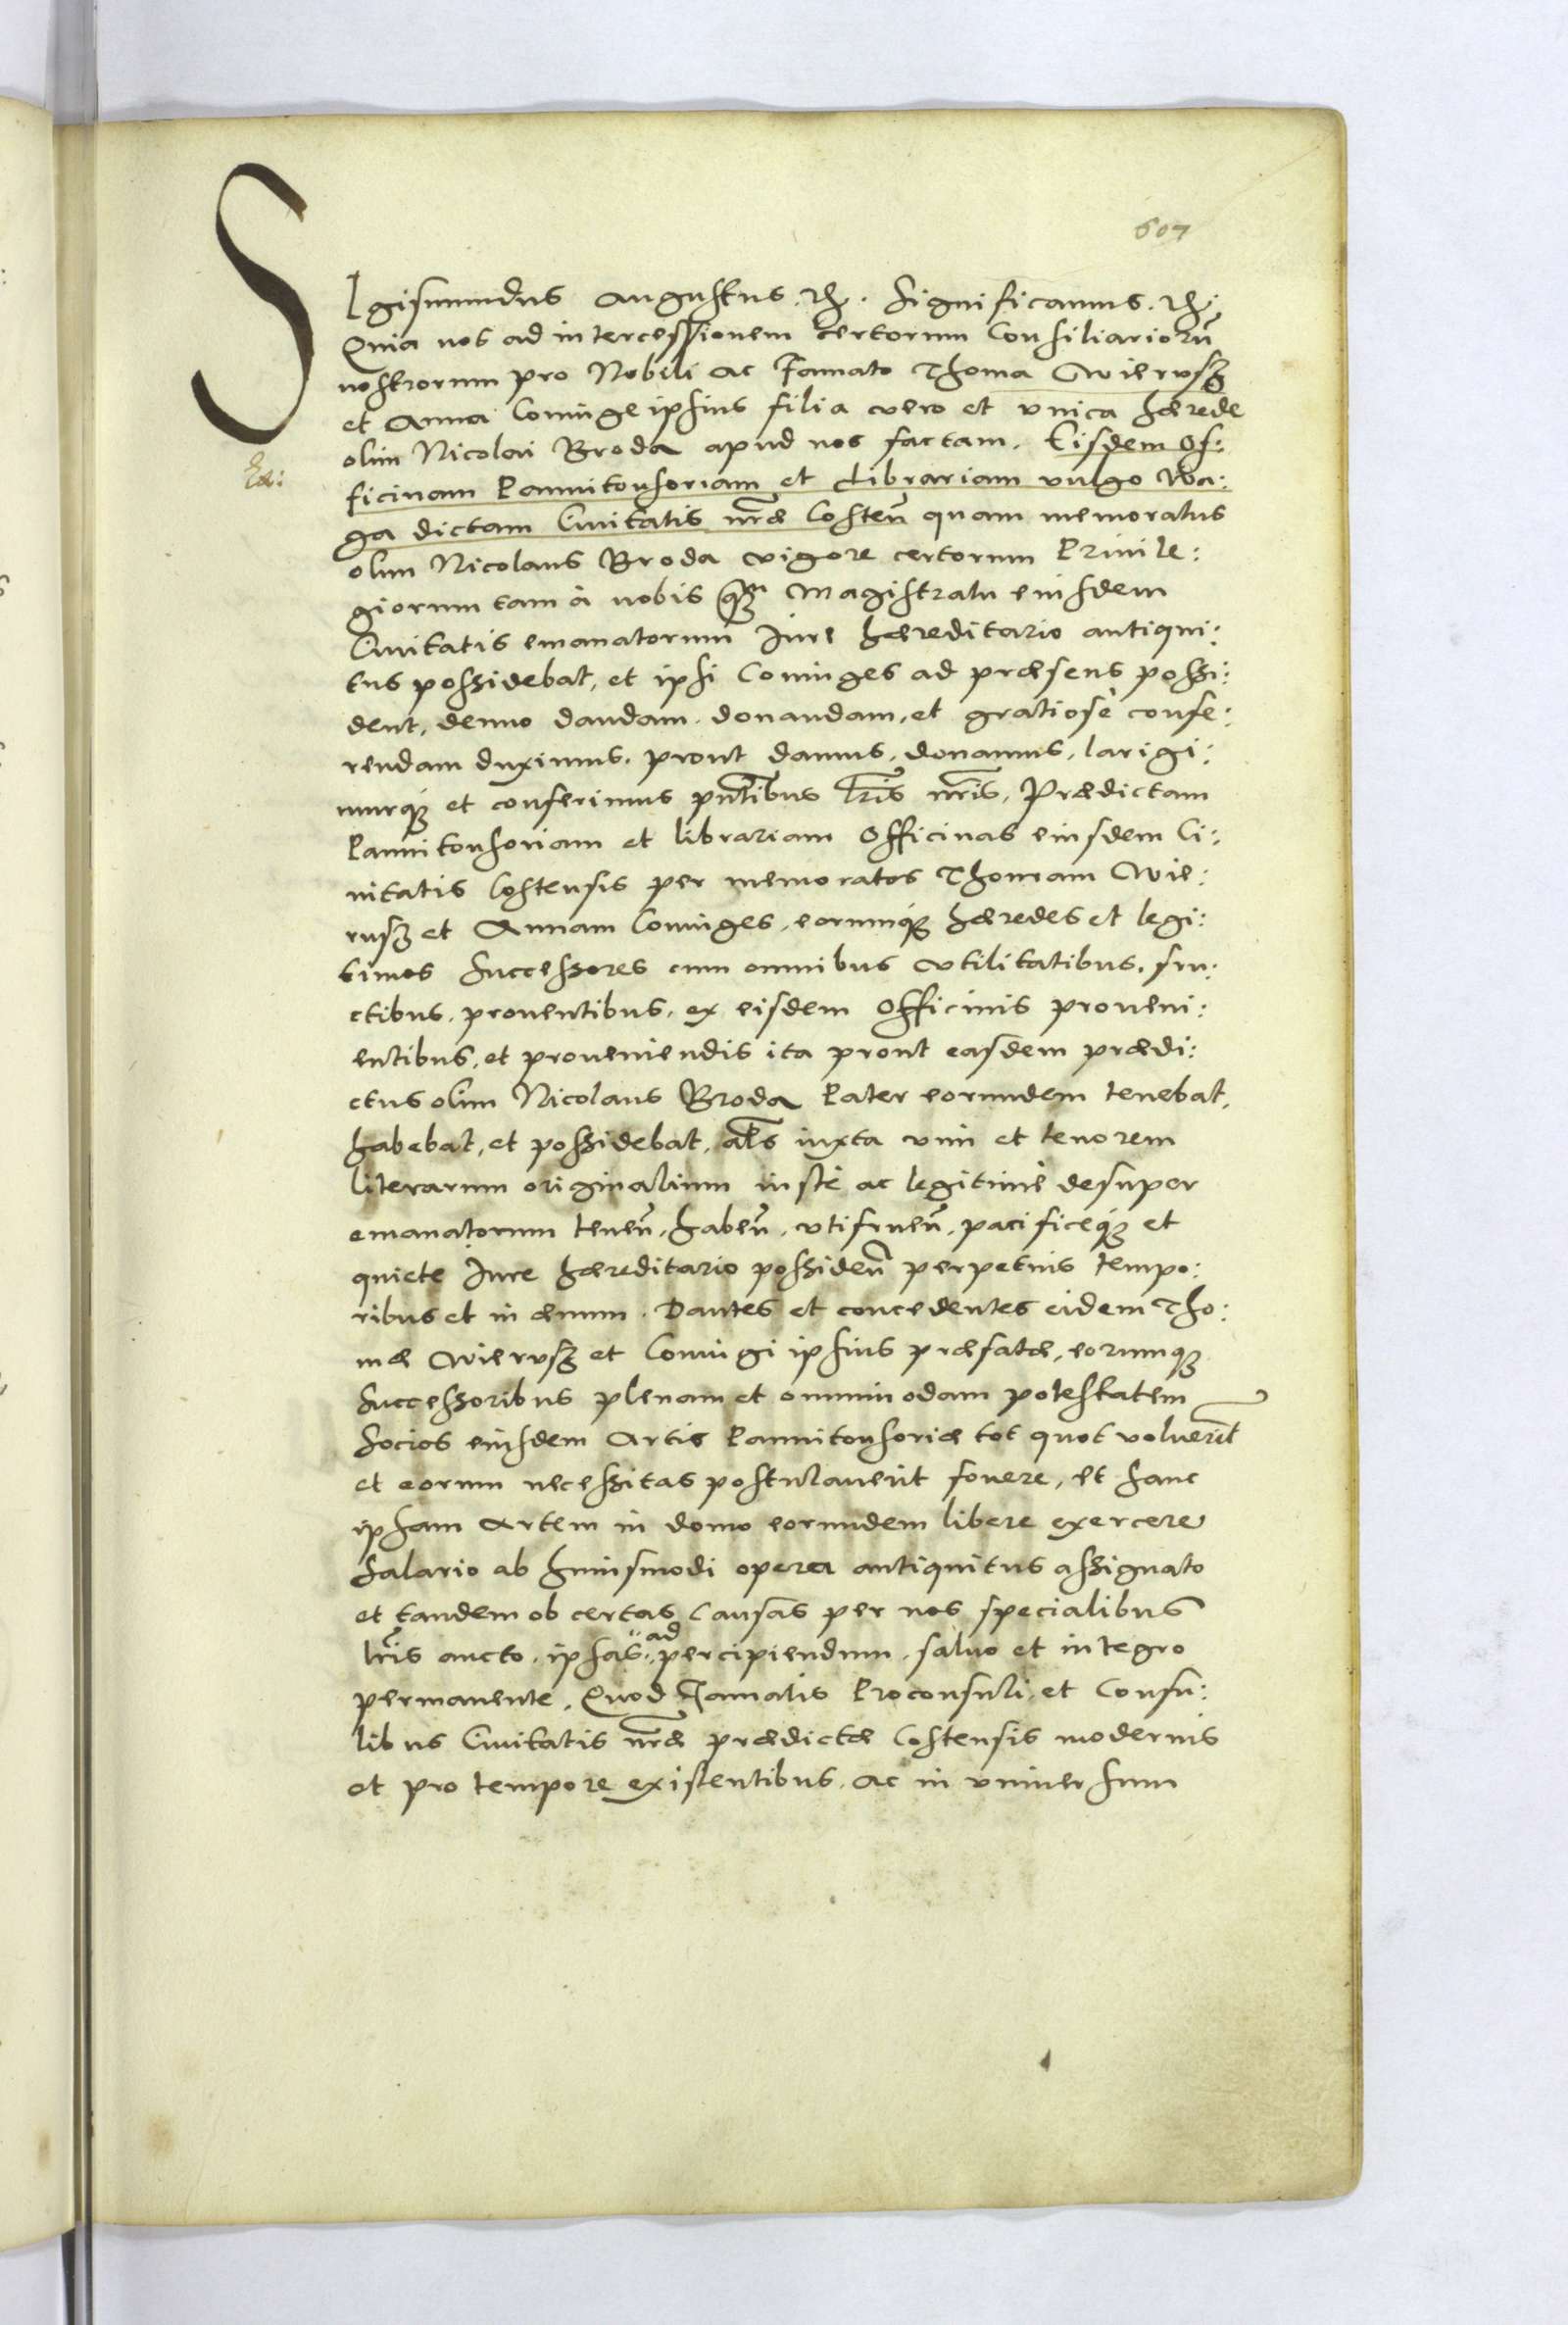 607
SIgismundus Augustus. etc. significamus. etc.
Quia nos ad intercessionem certorum Consiliarioru͂
nostrorum pro Nobili ac Famato Thoma Wierusz
et Anna Coniuge ipsius filia vero et vnica hærede
olim Nicolai Broda apud nos factam. Eisdem Of:
ficinam Pannitonsoriam et Librariam vulgo Wa:
ga dictam Ciuitatis nr̃æ Costeñ quam memoratus
olim Nicolaus Broda vigore certorum Priuile:
giorum tam à nobis q̃ȝ Magistratu eiusdem
Ciuitatis emanatorum Iure hæreditario antiqui:
tus possidebat, et ipsi Coniuges ad præsens possi:
dent, denuo dandam. donandam, et gratiosè confe:
rendam duximus. prout damus, donamus, larigi:
murq́ȝ et conferimus pñtibus lr̃is nr̃is. Prædictam
Pannitonsoriam et librariam Officinas eiusdem Ci:
uitatis Costensis per memoratos Thomam Wie:
rusz et Annam Coniuges, eorumq́ȝ hæredes et legi:
timos successores cum omnibus vtilitatibus, fru:
ctibus, prouentibus, ex eisdem Officinis proueni:
entibus, et proueniendis ita prout easdem prædi:
ctus olim Nicolaus Broda Pater eorundem tenebat,
habebat, et possidebat, al̃s iuxta vim et tenorem
literarum originalium iustè ac legitimè desuper
emanatorum teneñ, habeñ, vtifrueñ, pacificeq́ȝ et
quiete Iure hæreditario possideñ perpetuis tempo:
ribus et in æuum. Dantes et concedentes eidem Tho:
mæ Wierusz et Coniugi ipsius præfatæ, eorumqȝ
successoribus plenam et omnimodam potestatem
socios eiusdem Artis Pannitonsoriæ tot quot voluerĩt
et eorum necessitas postulauerit fouere, et hanc
ipsam Artem in domo eorundem libere exercere
Salario ab huiusmodi opera antiquitus assignato
et tandem ob certas causas per nos specialibus
lr̃is aucto. ipsas ad percipiendum. saluo et integro
permanente. Quod Famatis Proconsuli et Consu:
libus Ciuitatis nr̃æ prædictæ Costensis modernis
et pro tempore existentibus. ac in vniuersum